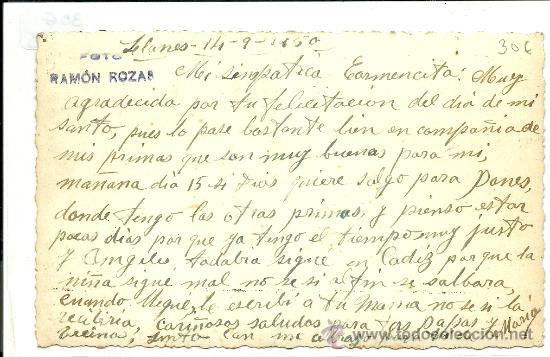 Llanes - 14-9-1950
306
FOTO
RAMÓN ROZAS
Mi simpatica Carmencita: Muy
agradecida por tu felicitación del dia de mi
santo, pues lo pase bastante bien en compañia de
mis primas que son muy buenas para mi,
mañana dia 15 si Dios quiere salgo para Panes,
donde tengo las otras primas, y pienso estar
pocos dias por que ya tengo el tiempo muy justo
y Angeles todabia sigue en Cadiz porque la
niña sigue mal no se si al fin se salbara,
cuando llegue, le escribi a tu Mama no se si la
recibiria, cariñosos saludos para tus Papas y Maria
junto con mi
todocoleccion